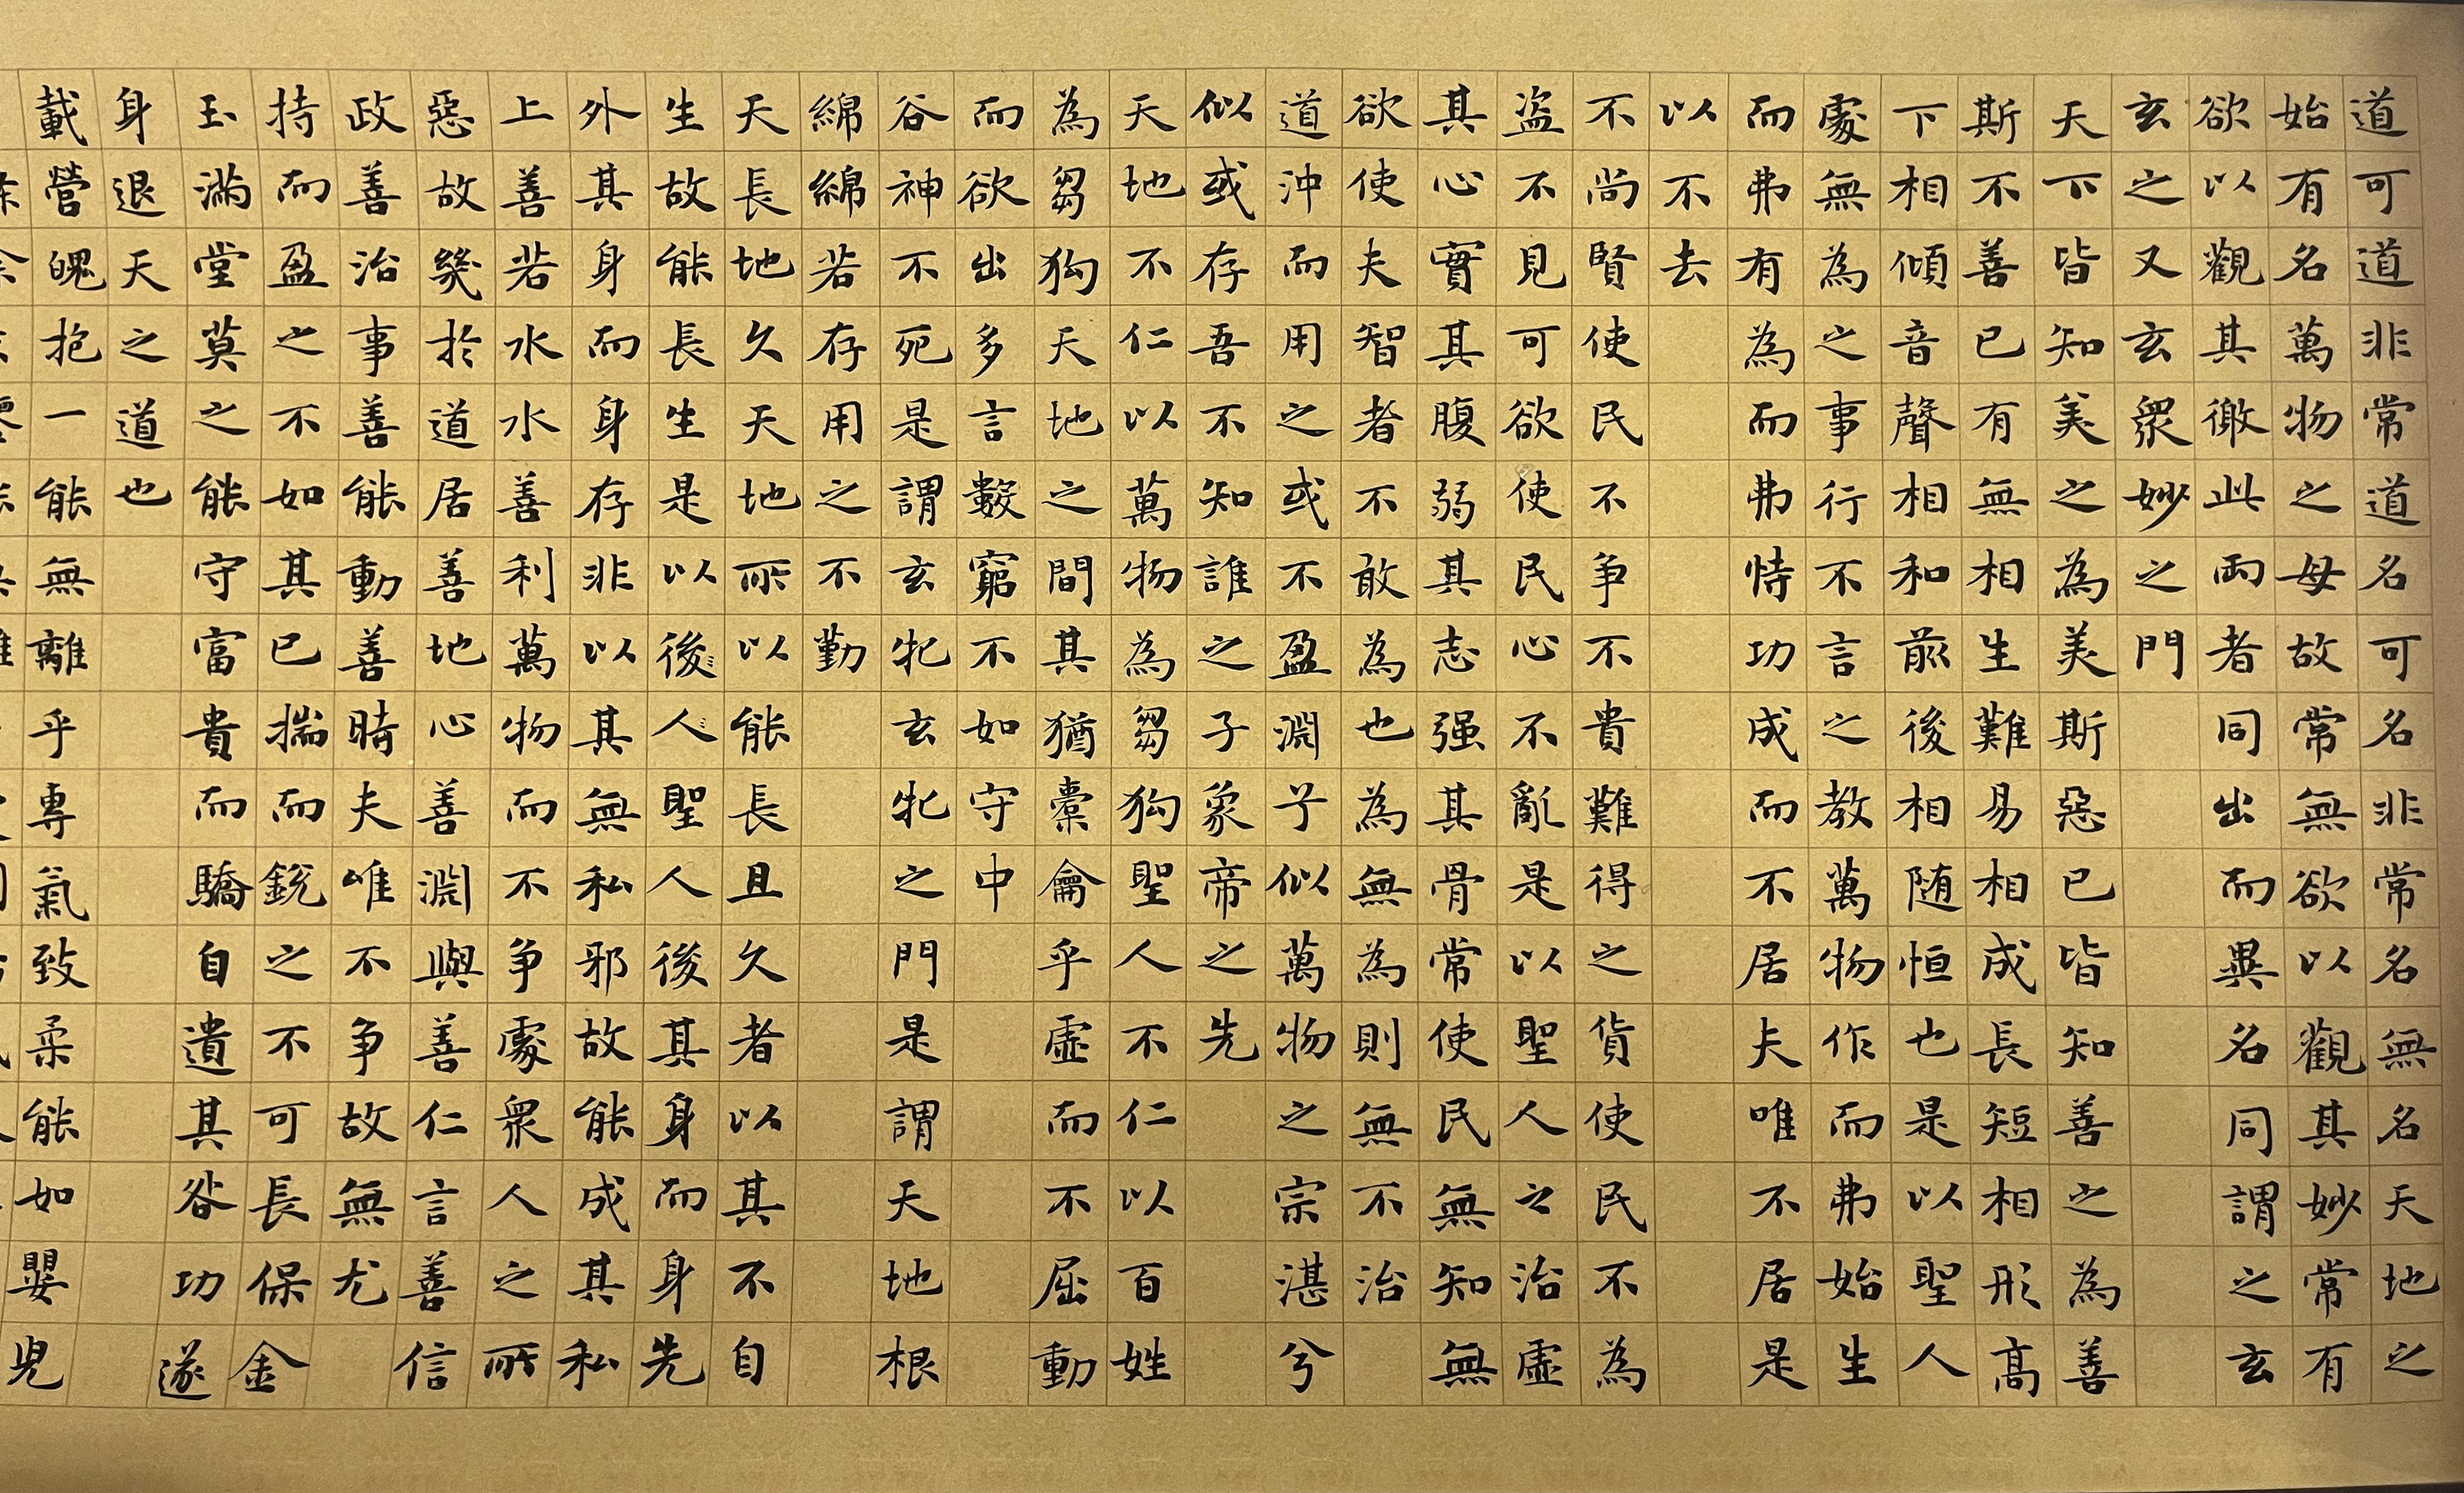 道可道非常道名可名非常名無名天地之
始有名萬物之母故常無欲以觀其妙常有
欲以觀其徼此兩者同出而異名同謂之玄
玄之又玄衆妙之門
天下皆知美之為美斯惡已皆知善之為善
斯不善已有無相生難易相成長短相形高
下相傾音聲相和前後相随恒也是以聖人
處無為之事行不言之教萬物作而弗始生
而弗有為而弗恃功成而不居夫唯不居是
以不去
不尚賢使民不争不貴難得之貨使民不為
盗不見可欲使民心不亂是以聖人之治虛
其心實其腹弱其志强其骨常使民無知無
欲使夫智者不敢為也為無為則無不治
道沖而用之或不盈淵兮似萬物之宗湛兮
似或存吾不知誰之子象帝之先
天地不仁以萬物為芻狗聖人不仁以百姓
為芻狗天地之間其猶橐籥乎虛而不屈動
而欲出多言數窮不如守中
谷神不死是謂玄牝玄牝之門是謂天地根
綿綿若存用之不勤
天長地久天地所以能長且久者以其不自
生故能長生是以後人聖人後其身而身先
外其身而身存非以其無私邪故能成其私
上善若水水善利萬物而不争處衆人之所
惡故幾於道居善地心善淵與善仁言善信
政善治事善能動善時夫唯不争故無尤
持而盈之不如其已揣而銳之不可長保金
玉滿堂莫之能守富貴而驕自遺其咎功遂
身退天之道也
載營魄抱一能無離乎專氣致柔能如嬰兒